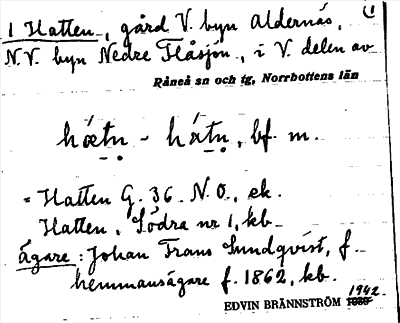 (1
1 Hatten, gård V. byn Aldernäs,
N.V. byn Nedre Flåsjön, i V. delen av
Råneå sn och tg, Norrbottens län
= Hatten G. 36 N.O., ek.
Hatten, Södra nr 1, kb
ägare: Johan Frans Sundqvist, f.
hemmansägare f. 1862, kb.
1942
EDVIN BRÄNNSTRÖM 1939